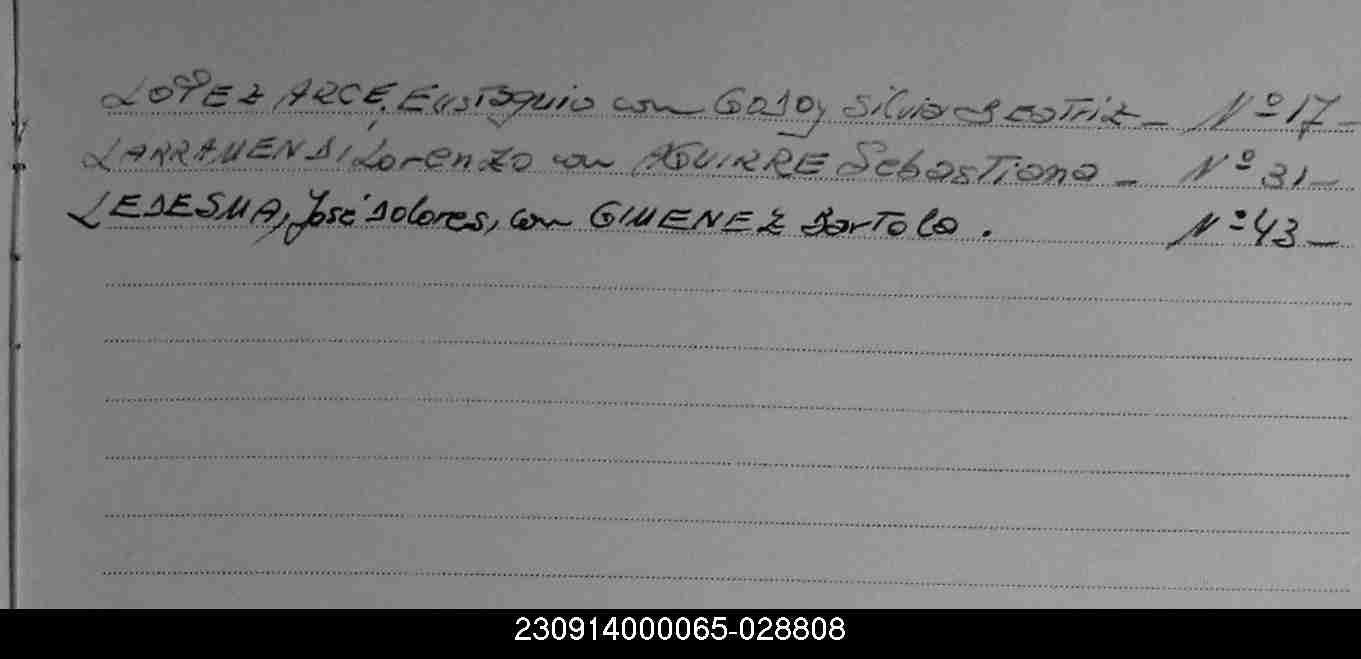 LOPEZ ARCE, Eustaquio con GODOy Silvia Beatriz - Nº 17 -
LARRAMENDI, Lorenzo con AGUIRRE Sebastiana - Nº 31 -
LEDESMA, José Dolores, con GIMENEZ Bartola. Nº 43 -
230914000065-028808